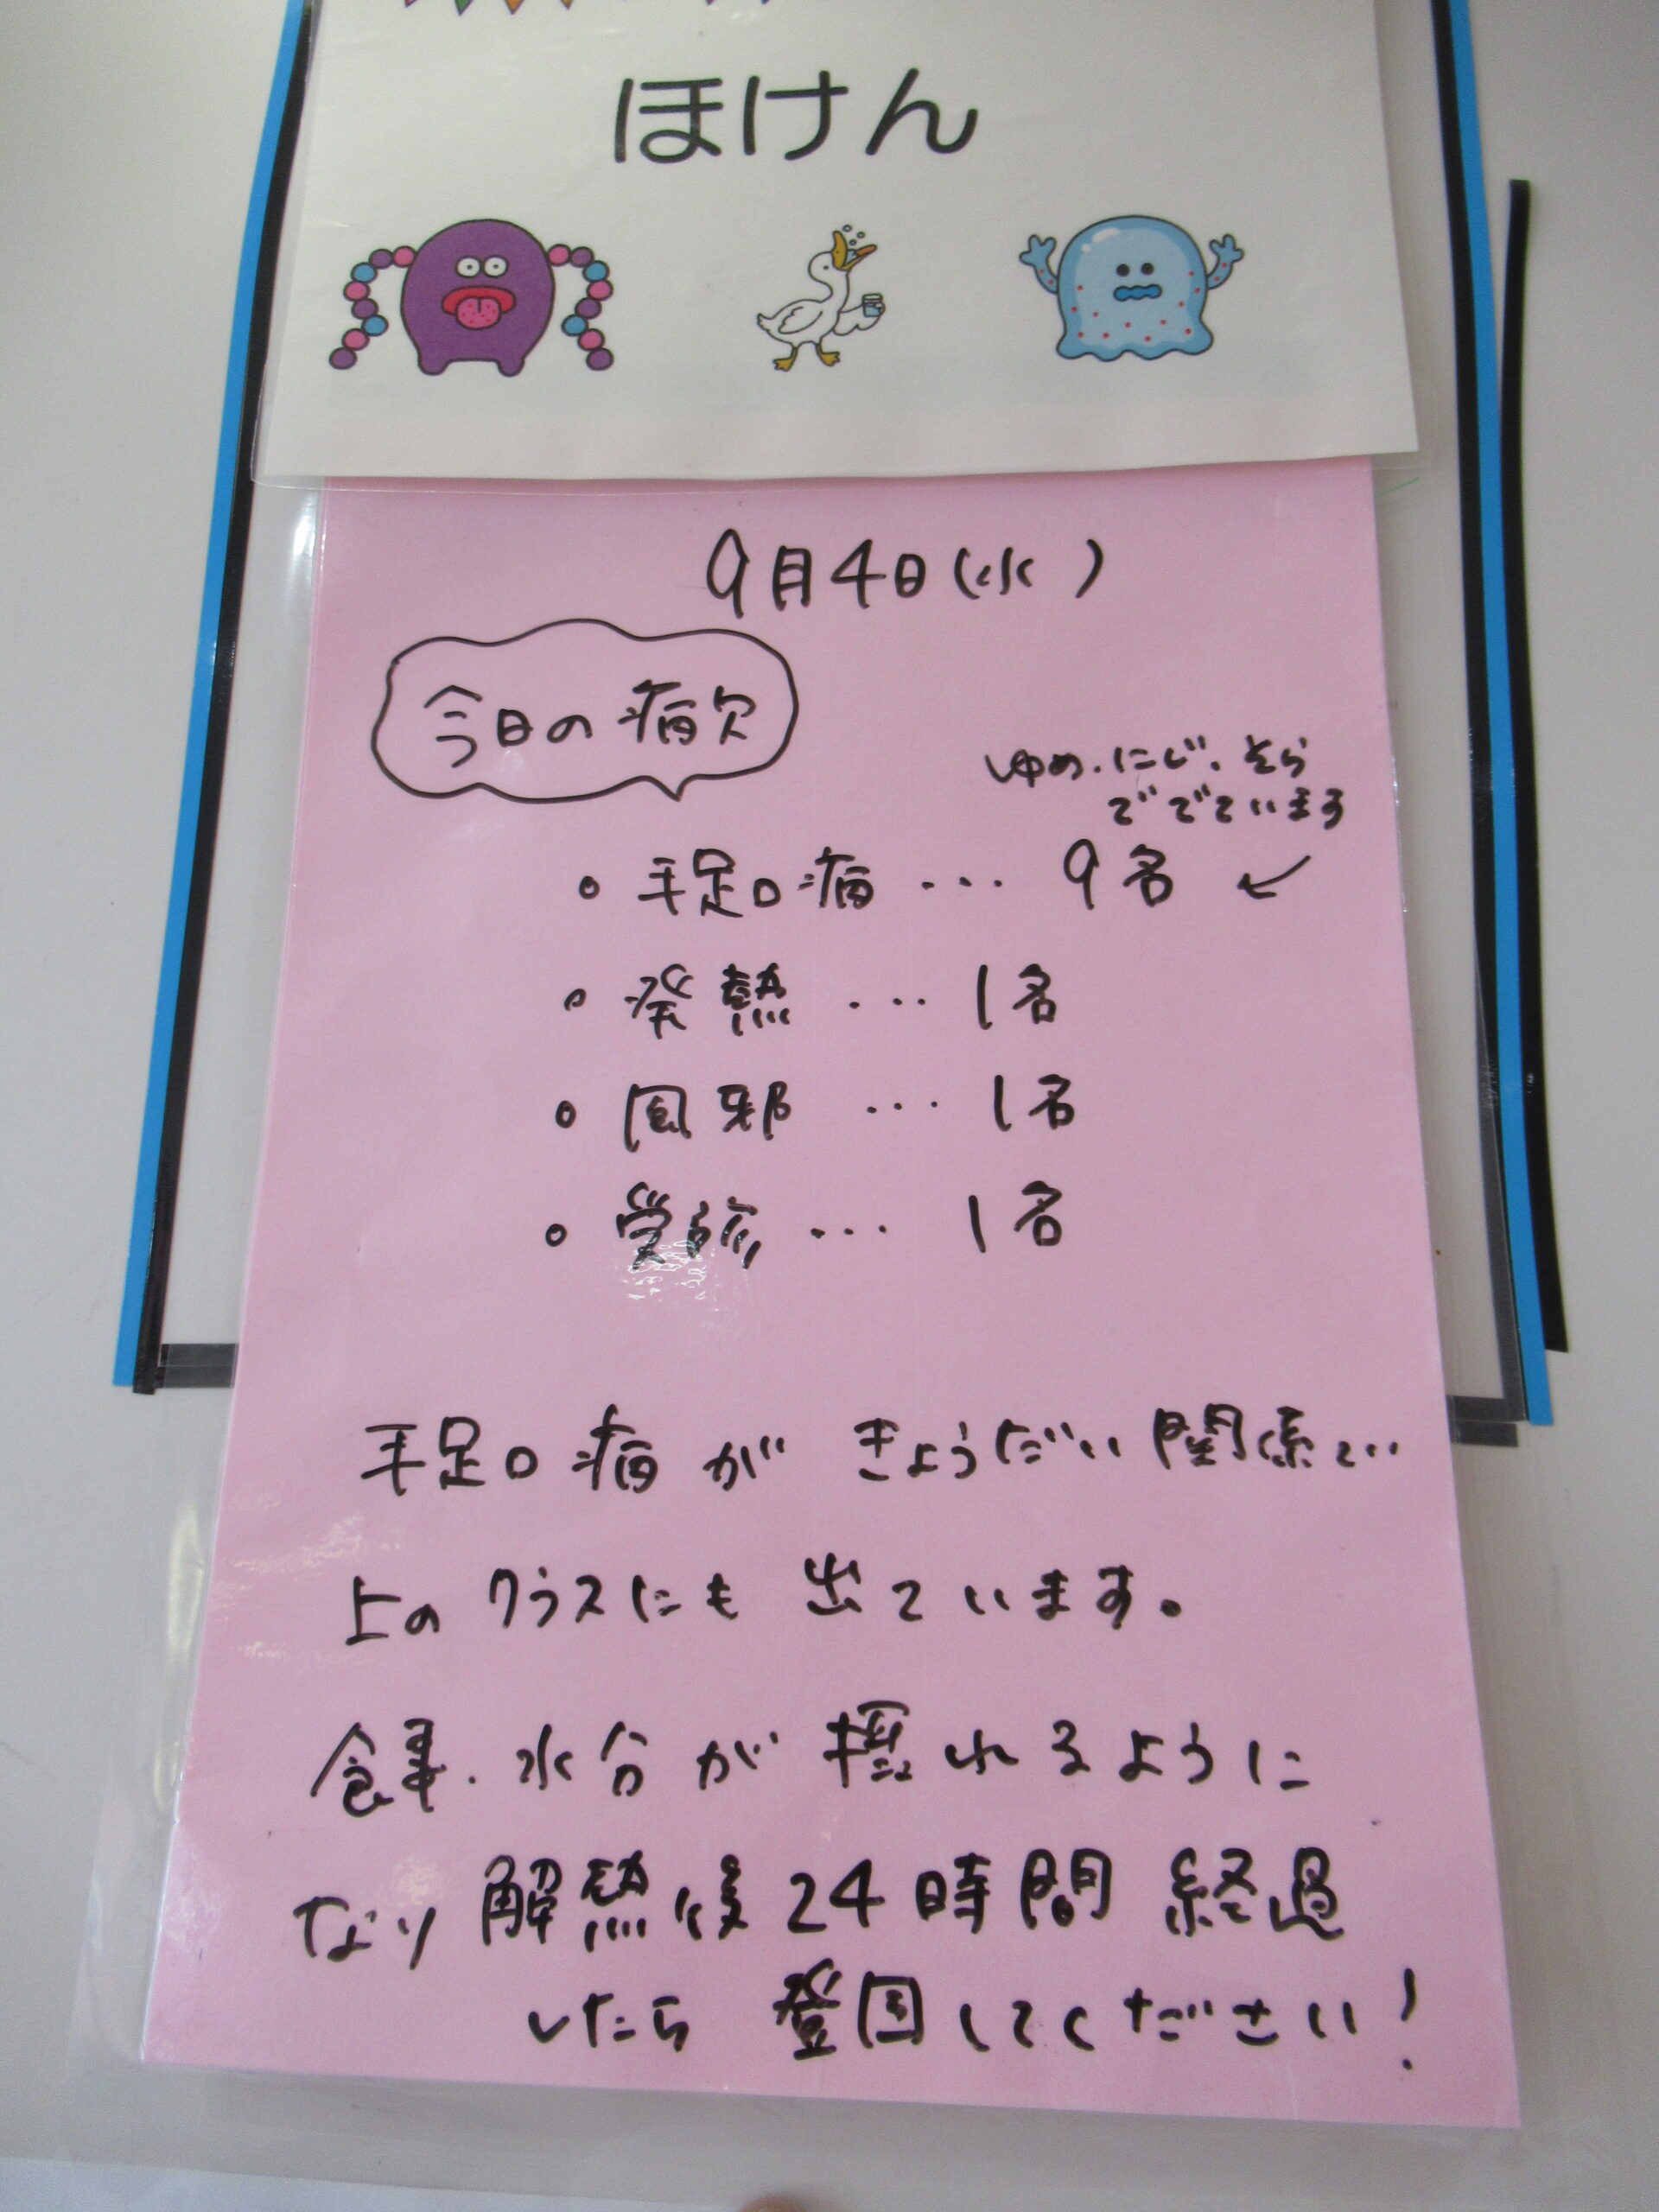 ほけん
9月4日(水)
今日の病欠
ゆめ.にじ.そら
ででています
。手足口病 ... 9名
。発熱 ... 1名
。風邪 ... 1名
。受診 ... 1名
手足口病が きょうだい関係で
上のクラスにも 出ています。
食事.水分が 摂れるように
なり 解熱後24時間経過
したら 登園してください!